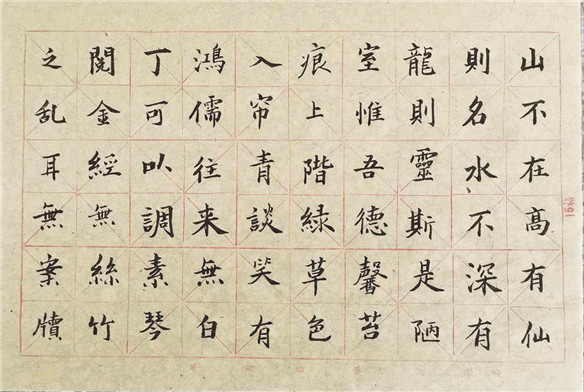 山不在高有仙
則名水不深有
龍則靈斯是陋
室惟吾德馨苔
痕上階緑草色
入帘青談笑有
鴻儒往来無白
丁可以調素琴
閲金經無絲竹
之乱耳無案牘